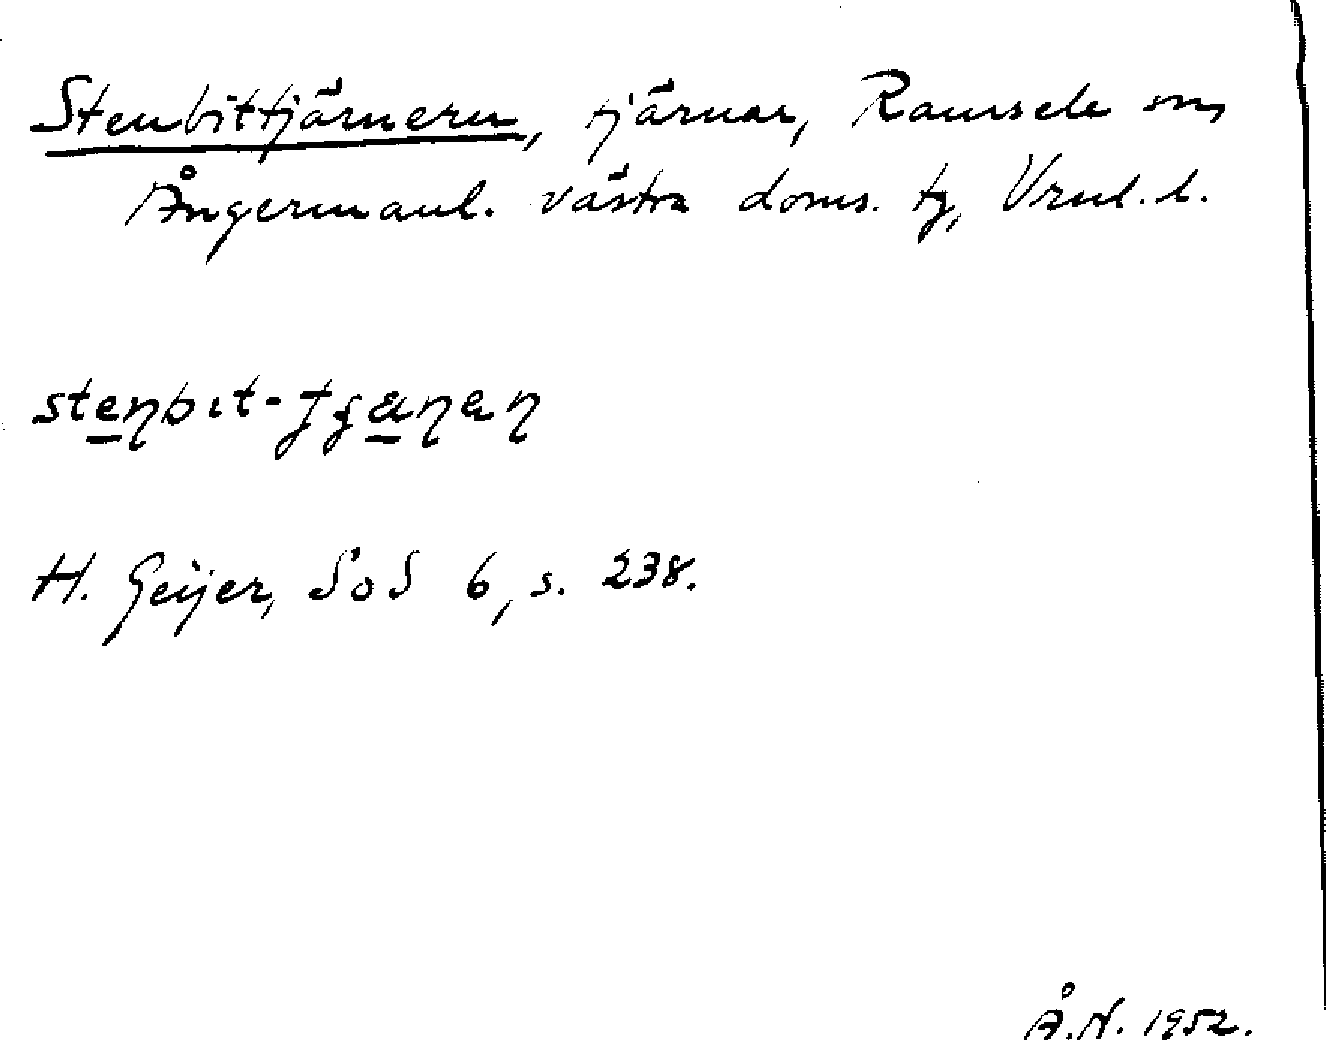 Stenbittjärnern, tjärnar, Ramsele sn,
Ångermanl. västra doms. tg, Vrnl. l.
H. Geijer, SoS 6, s. 238.
Å.N. 1952.